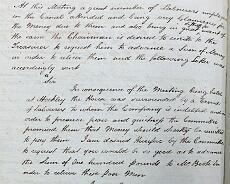 At this Meeting a great number of Labourers employed
in the Canal attended and being very clamorous for
the Money due to them and also being
the rain the Chairman is desired to write to the
Treasurer to request him to advance a Sum of Money
in order to relieve them and the following Letter was
accordingly sent
Sir
In consequence of the Meeting being held
at Hockley the House was surrounded by a Crowd
of Labourers to whom the Company is indebted and in
order to procure peace and quietness the Committee
promised them that Money should shortly be remitted
to pay them I am desired therefore by the Committee
to request that you would be so good as to advance
the Sum of One hundred pounds to Mr. in
order to relieve these poor Men